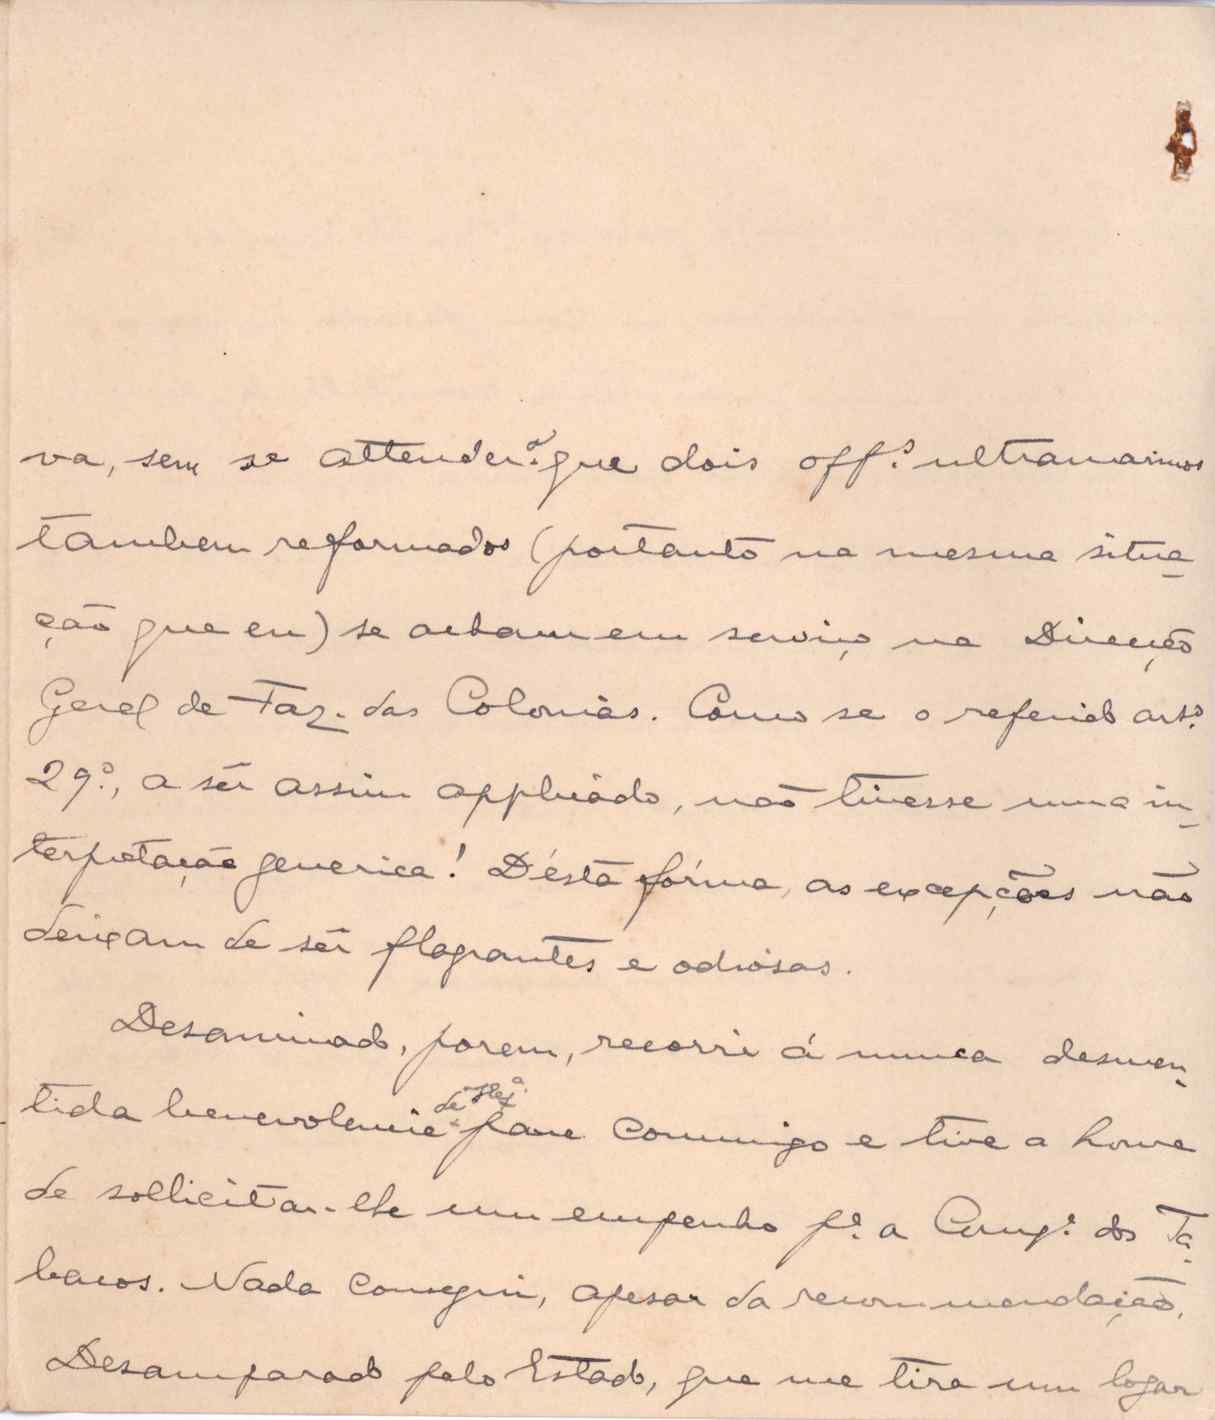 va, sem se attender a que dois off.s ultramarinos
tambem reformados (portanto na mesma situa-
ção que eu) se acham em serviço na Direcção
Geral de Faz. das Colonias. Como se o referido art.º
29.º, a sêr assim applicado, não tivesse uma in-
terpretação generica! D'ésta fórma, as excepções não
deixam de sêr flagrantes e odiósas.
Desanimado, porem, recorri á nunca desmen-
tida benevolencia de para commigo e tive a honra
de sollicitar-lhe um empenho p.ª a Comp.ª dos Ta-
bacos. Nada consegui, apesar da recommendação.
Desamparado pelo Estado, que me tira um logar